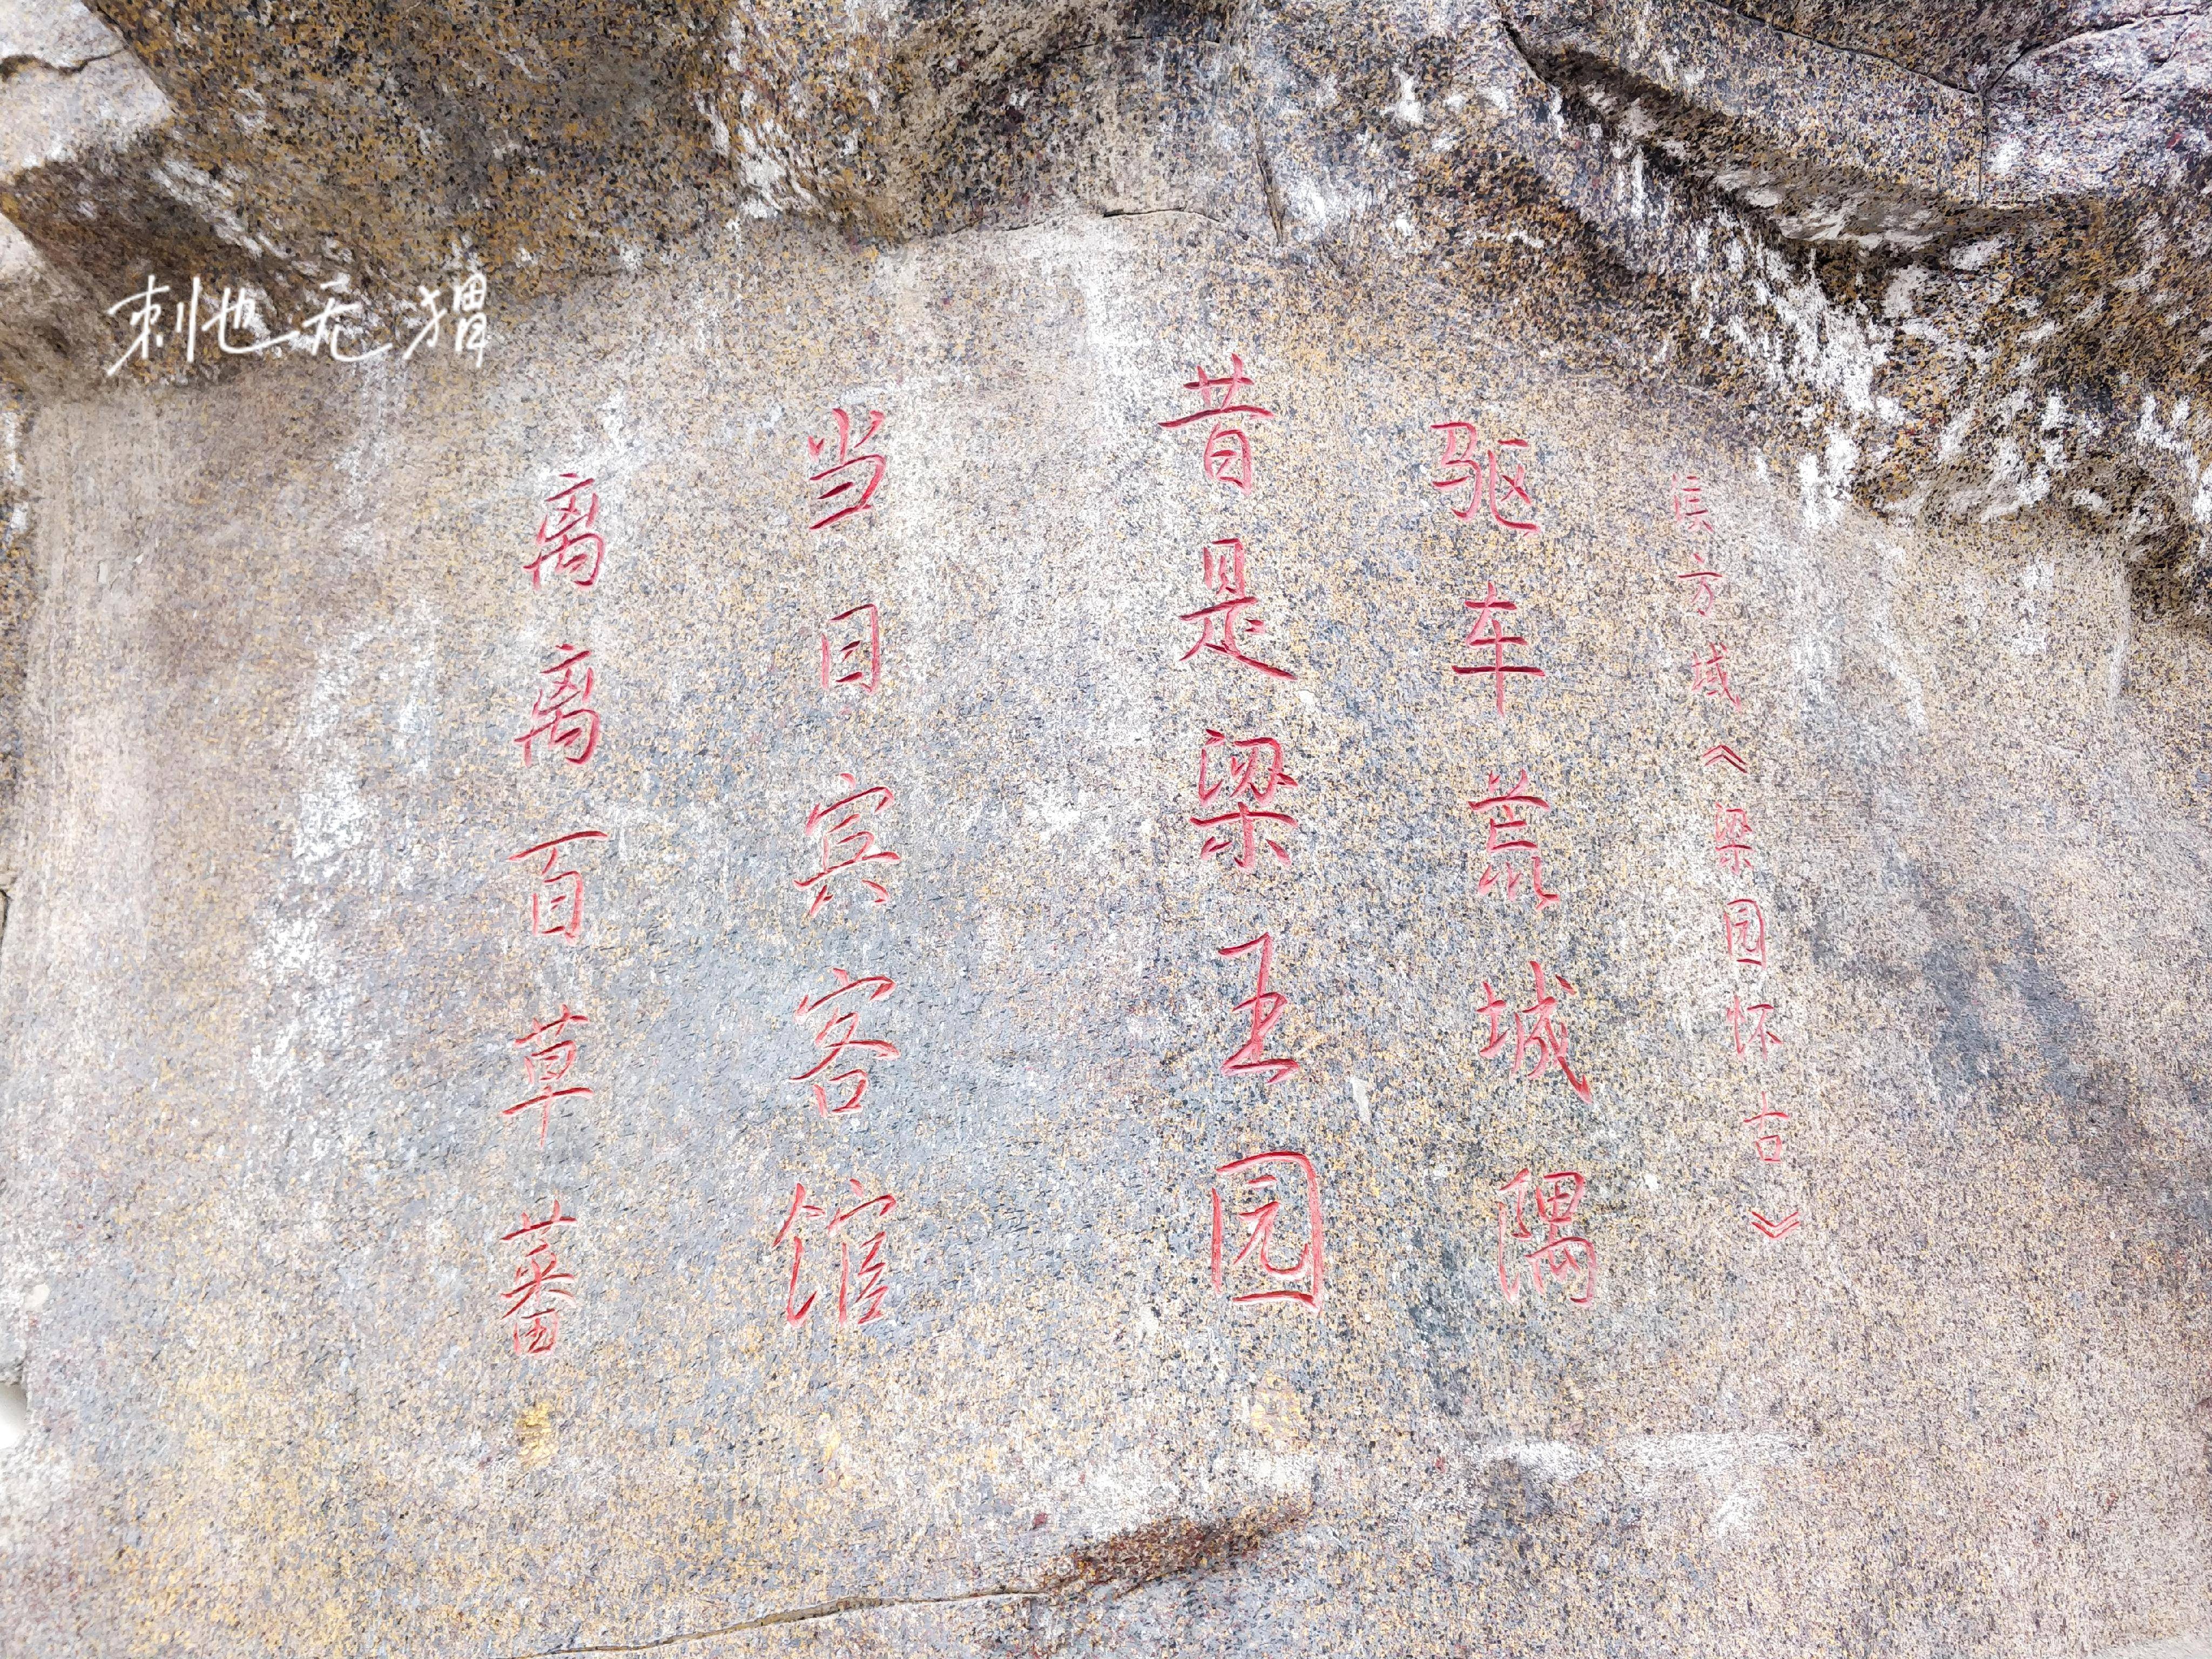 刺也无猬
侯方域《梁园怀古》
驱车城隅
昔是梁王园
当日宾客馆
离离百草蕃